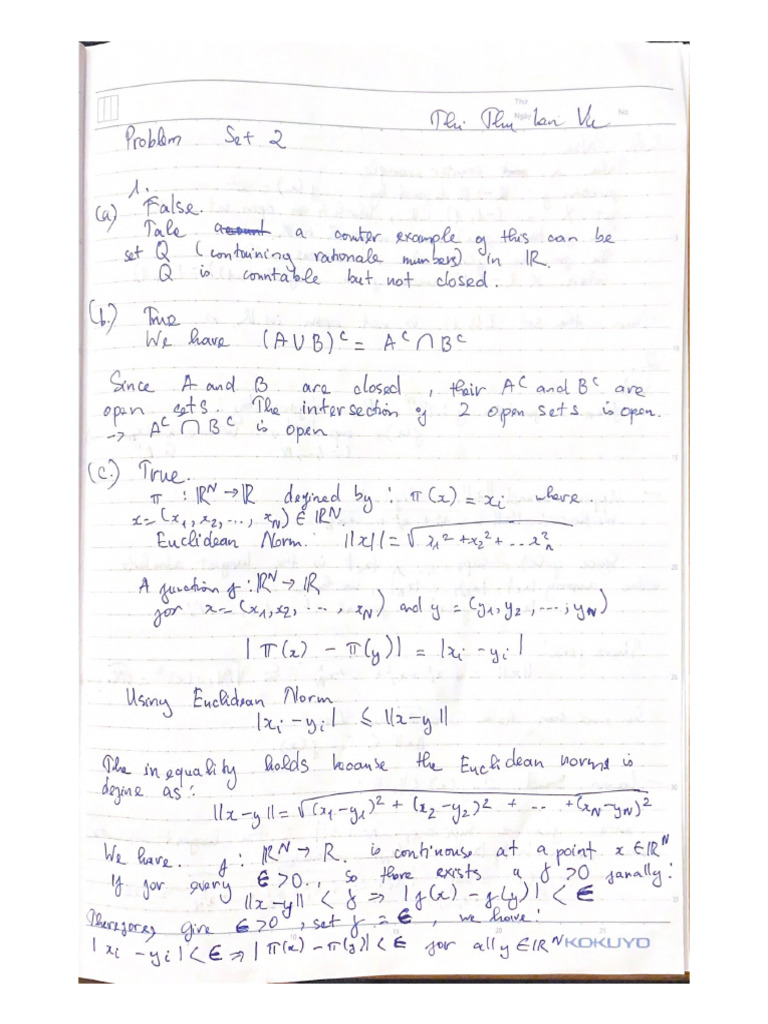 Thứ
Ngày
No
Thi Thu Lan Vu
Problem Set 2
1.
(a) False.
Take a counter example of this can be
set Q (containing rationale numbers) in ℝ.
Q is countable but not closed.
(b.) True
We have (A∪B)ᶜ = Aᶜ ∩ Bᶜ
Since A and B are closed, their Aᶜ and Bᶜ are
open sets. The intersection of 2 open sets is open.
→ Aᶜ ∩ Bᶜ is open
(c.) True.
π : ℝᴺ → ℝ defined by : π(x) = xᵢ where.
x = (x₁, x₂, ..., x_N) ∈ ℝᴺ
Euclidean Norm: ||x|| = √(x₁² + x₂² + ... xₙ²)
A function f : ℝᴺ → ℝ
for x = (x₁, x₂, ..., x_N) and y = (y₁, y₂, ..., y_N)
|π(x) - π(y)| = |xᵢ - yᵢ|
Using Euclidean Norm
|xᵢ - yᵢ| ≤ ||x-y||
The inequality holds because the Euclidean norms is
define as:
||x-y|| = √((x₁-y₁)² + (x₂-y₂)² + ... + (x_N-y_N)²)
We have. f : ℝᴺ → R. is continouse at a point x ∈ ℝᴺ
If for every ε > 0, so there exists a δ > 0 :
||x-y|| < δ ⇒ |f(x) - f(y)| < ε
Therefore, give ε > 0, set δ = ε, we have:
|xᵢ - yᵢ| < ε ⇒ |π(x) - π(y)| < ε for all y ∈ ℝᴺ
KOKUYO